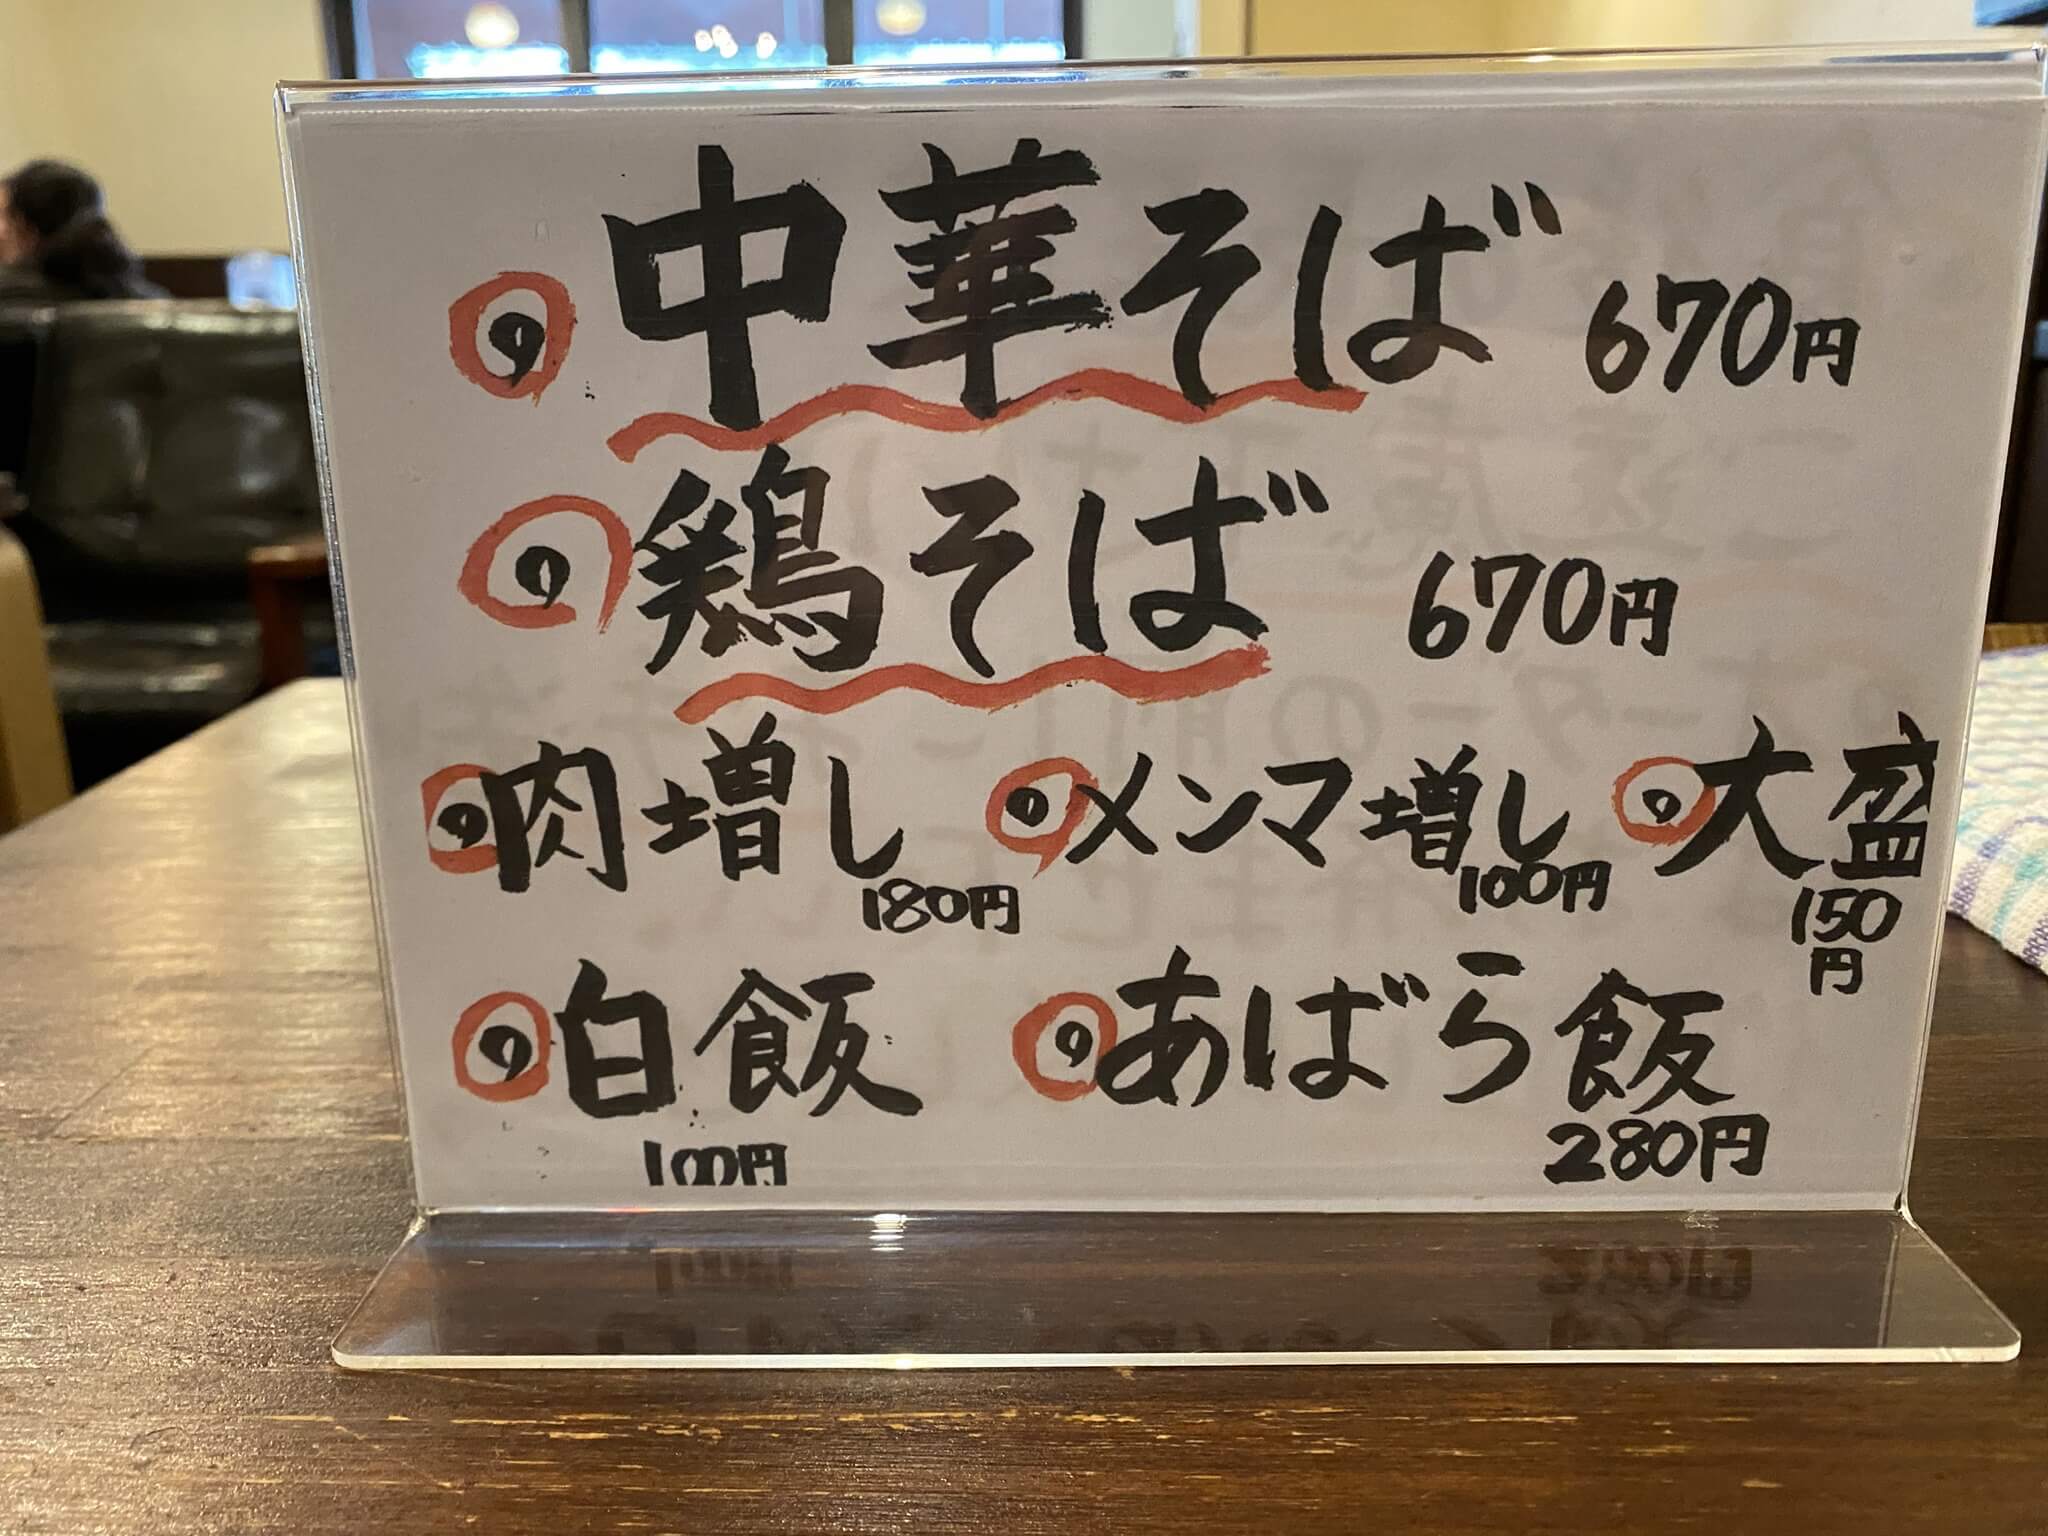 中華そば 670円
鶏そば 670円
肉増し 180円 メンマ増し 100円 大盛 150円
白飯 100円 あばら飯 280円